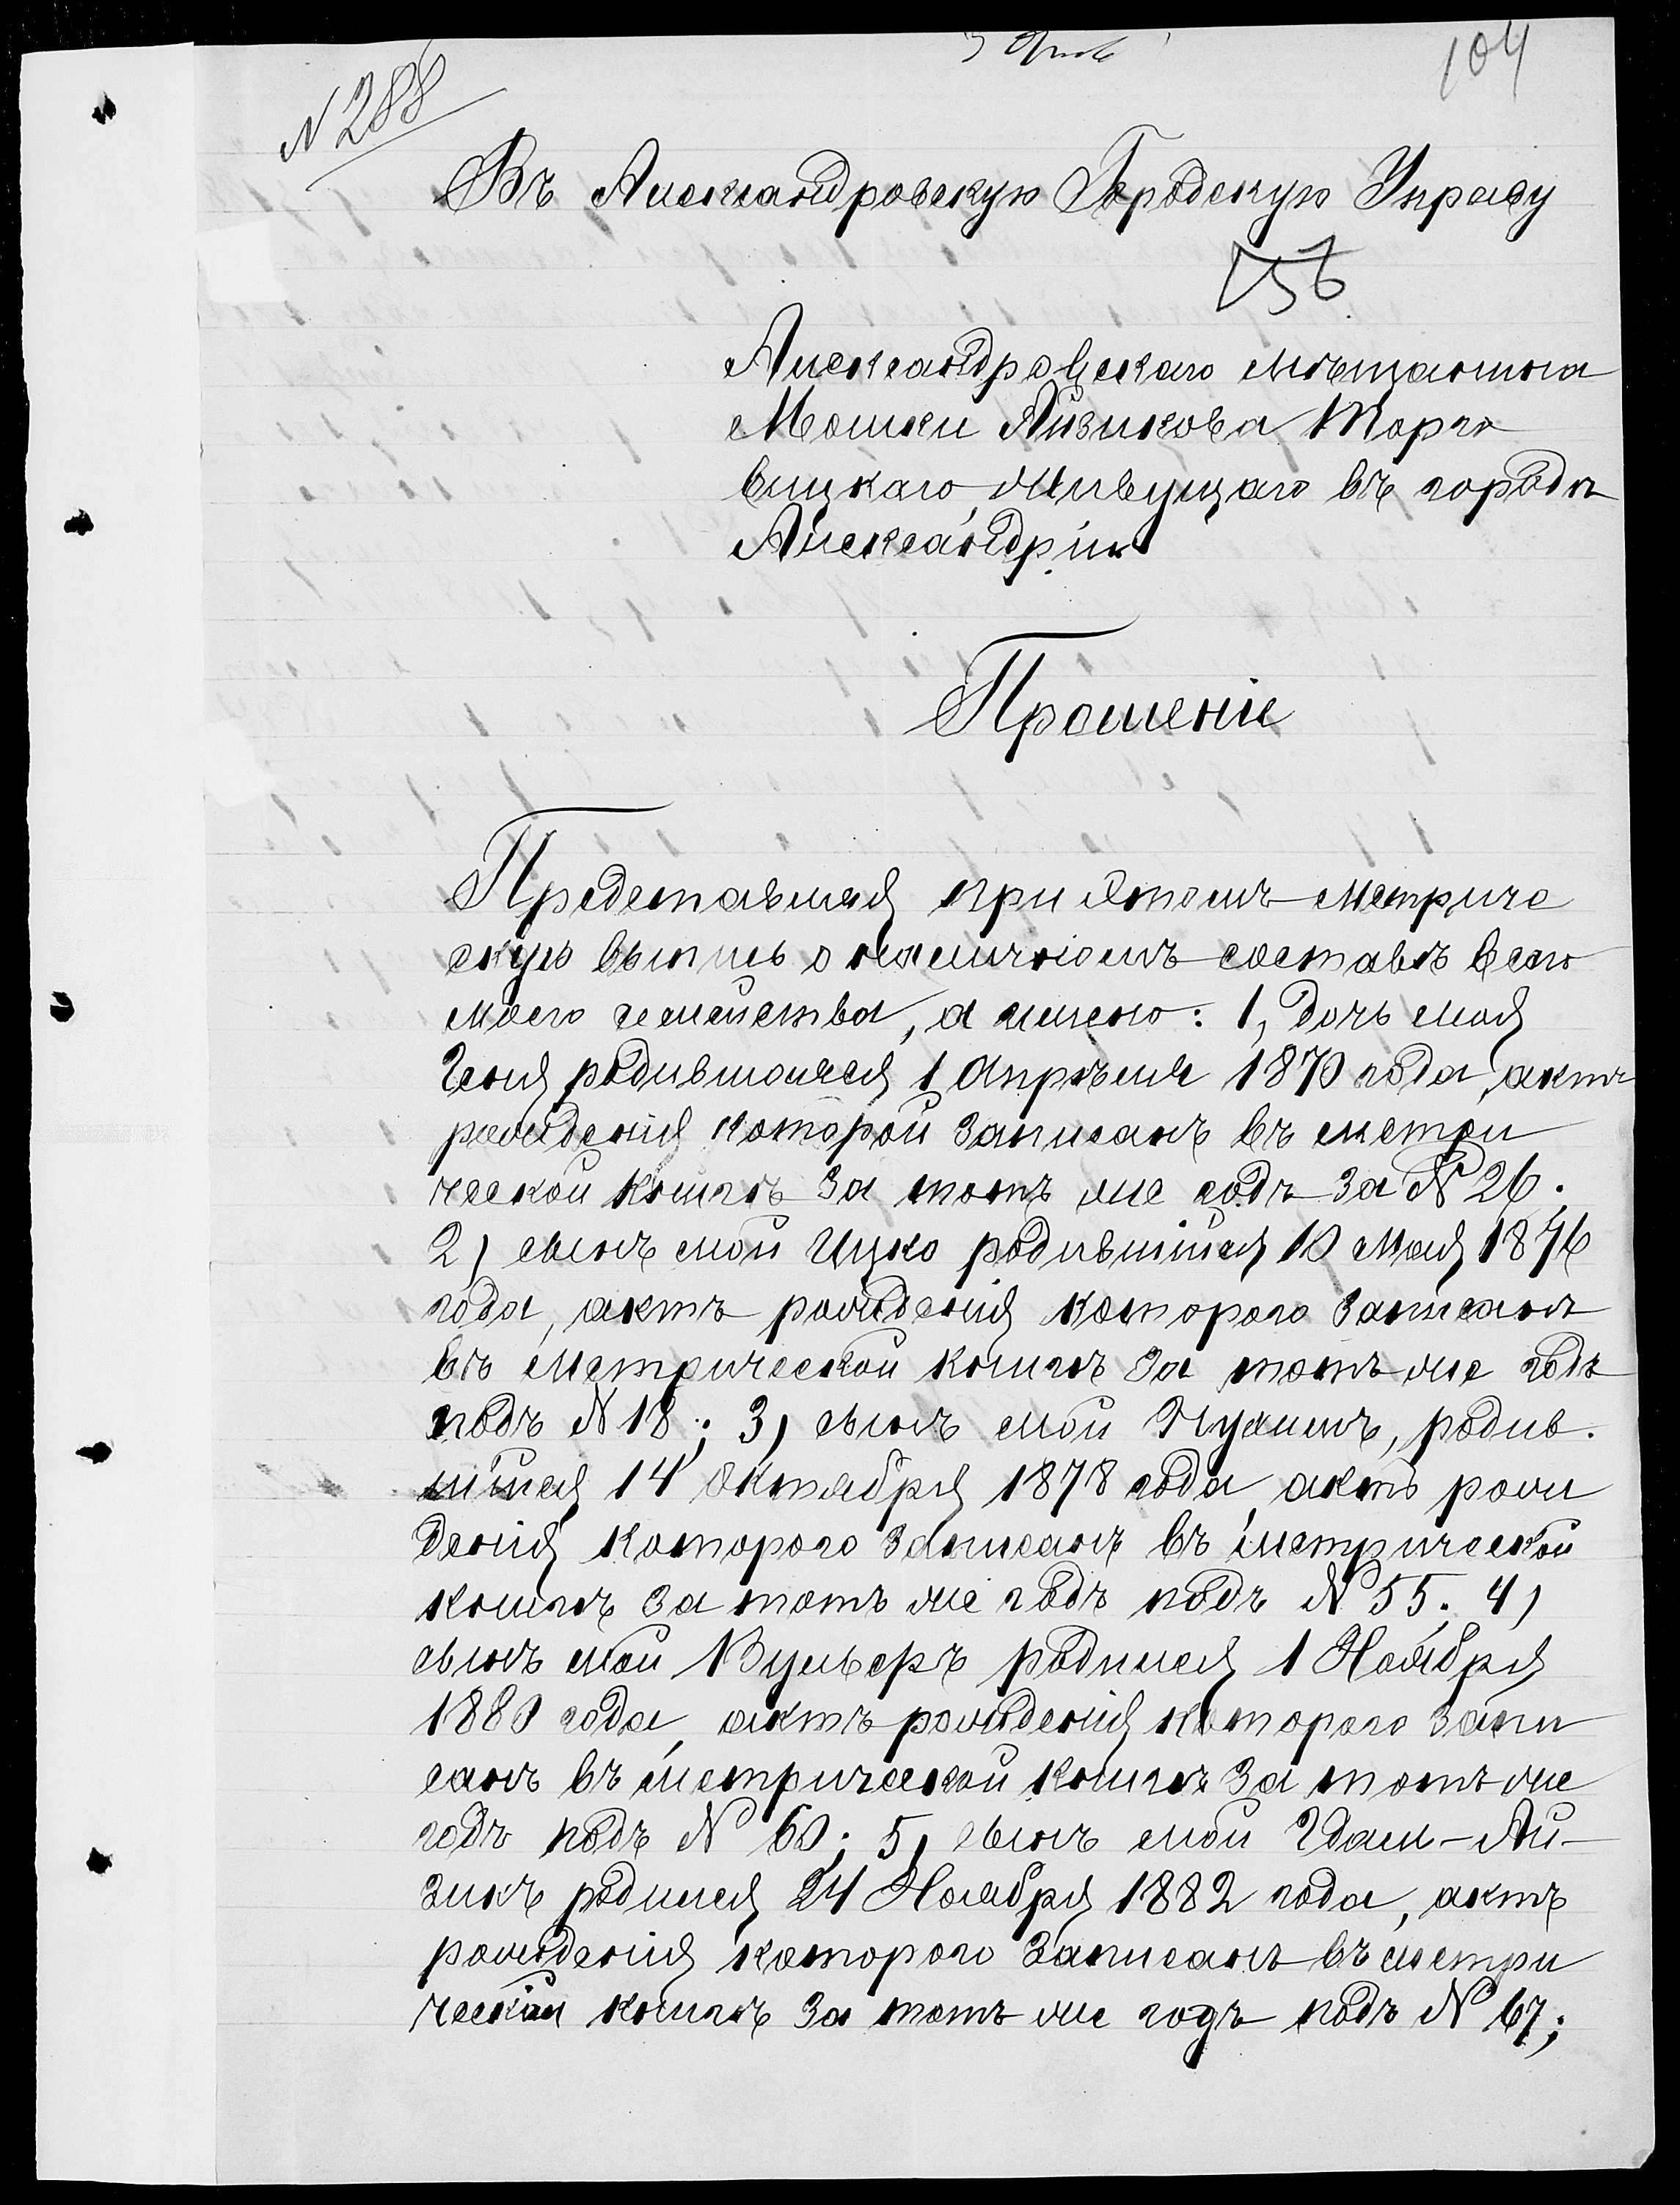 104
N 288
Въ Александровскую Городскую Управу
Александровскаго мѣщанина
Мошки Айзикова Торго
вицкаго, живущаго въ городѣ
Александріи
Прошеніе
Представляя при этомъ метриче
скую выпись о наличномъ составѣ всего
моего семейства, а именно: 1, дочь моя
Геня родившаяся 1 Апрѣля 1870 года, актъ
рожденія которой записанъ въ метри
ческой книгѣ за тотъ же годъ за N 26.
2) сынъ мой Ицко родившійся 10 Мая 1876
года, актъ рожденія котораго записанъ
въ метрической книгѣ за тотъ же годъ
подъ N 18; 3) сынъ мой Нухимъ, родив.
шійся 14 Октября 1878 года актъ рож
денія котораго записанъ въ метрической
книгѣ за тотъ же годъ подъ N 55. 4)
сынъ мой Вульеръ родился 1 Ноября
1880 года, актъ рожденія котораго запи
санъ въ метрической книгѣ за тотъ же
годъ подъ N 60; 5, сынъ мой Гдаль-Ай-
зикъ родился 24 Ноября 1882 года, актъ
рожденія котораго записанъ въ метри
ческой книгѣ за тотъ же годъ подъ N 67;